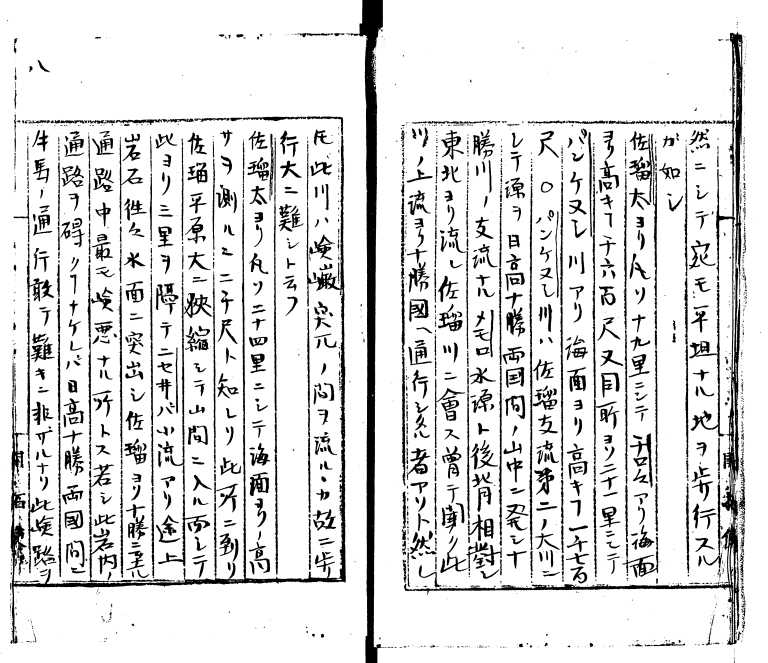 然ニシデ宛モ平坦ナル地ヲ歩行スル
が如シ
佐瑠太ヨリ凡ソ十九里ニシテ チロロアリ海面
ヨリ高キ
千六百尺又同所ヨリ二十一里ニシテ
パンケヌシ川アリ海面ヨリ高キ
一千七百
尺 〇パンケヌシ川ハ佐瑠支流第二ノ大川ニ
シテ源ヲ日高十勝両国間ノ山中ニ発シ十
勝川ノ支流ナルメモロ水源ト後背相對シ
東北ヨリ流レ佐瑠川ニ會ス曽テ聞ク此
川ノ上流ヨリ十勝國ヘ通行シタル者アリト然レ
八
此川ハ嶮巌突兀ノ間ヲ流ルヽカ故ニ歩
行大ニ難シト云フ
佐瑠太ヨリ凡ソ二十四里ニシテ海面ヨリノ高
サヲ測ルニ二千尺ト知レリ此所ニ到リ
佐瑠平原大ニ狭縮シテ山間ニ入ル而シテ
此ヨリ三里ヲ隔テニセ井パ小流アリ途上
岩石往々水面ニ突出シ佐瑠ヨリ十勝ニ至ル
通路中最モ嶮悪ナル所トス若シ此岩内ノ
通路ヲ碍クナケレバ日高十勝両國間ニ
牛馬ノ通行敢テ難キニ非ザルナリ此嶮路ヲ